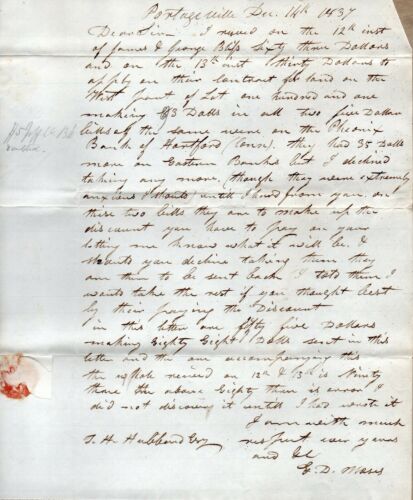 Portageville Dec. 14th 1837
Dear Sir I rec'd on the 12th inst
of James & George Bliss Sixty three Dollars
and on the 13th inst thirty Dollars to
apply on their Contract for land on the
West part of Lot one hundred and one
making 93 Dolls in all two five Dollar
bills of the same were on the Pheonix
Bank of Hartford (Conn). they had 35 Dolls
more on Eastern Banks but I declined
taking any more (though they were extremely
anxious I should) until I heard from you, on
these two bills they are to make up the
discount you have to pay on your
letting me know what it will be. &
should you decline taking them they
are then to be sent back I told them I
would take the rest if you thought best
by their paying the Discount
in this letter are fifty five Dollars
making Eighty Eight Dolls sent in this
letter and the one accompanying this
the whole received on 12th & 13th is Ninety
three the above Eighty then is error I
did not discover it untill I had wrote it
I am with much
T. H. Hubbard Esq respect ever yours
and &c
E. D. Moses